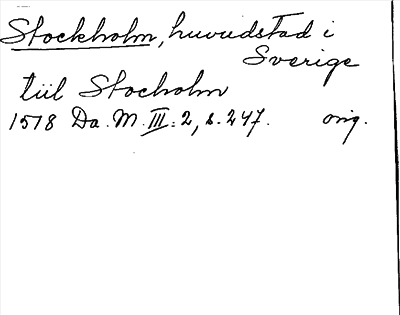 Stockholm, huvudstad i
Sverige
tiil Stocholm
1518 Da. M. III: 2, s. 247. orig.